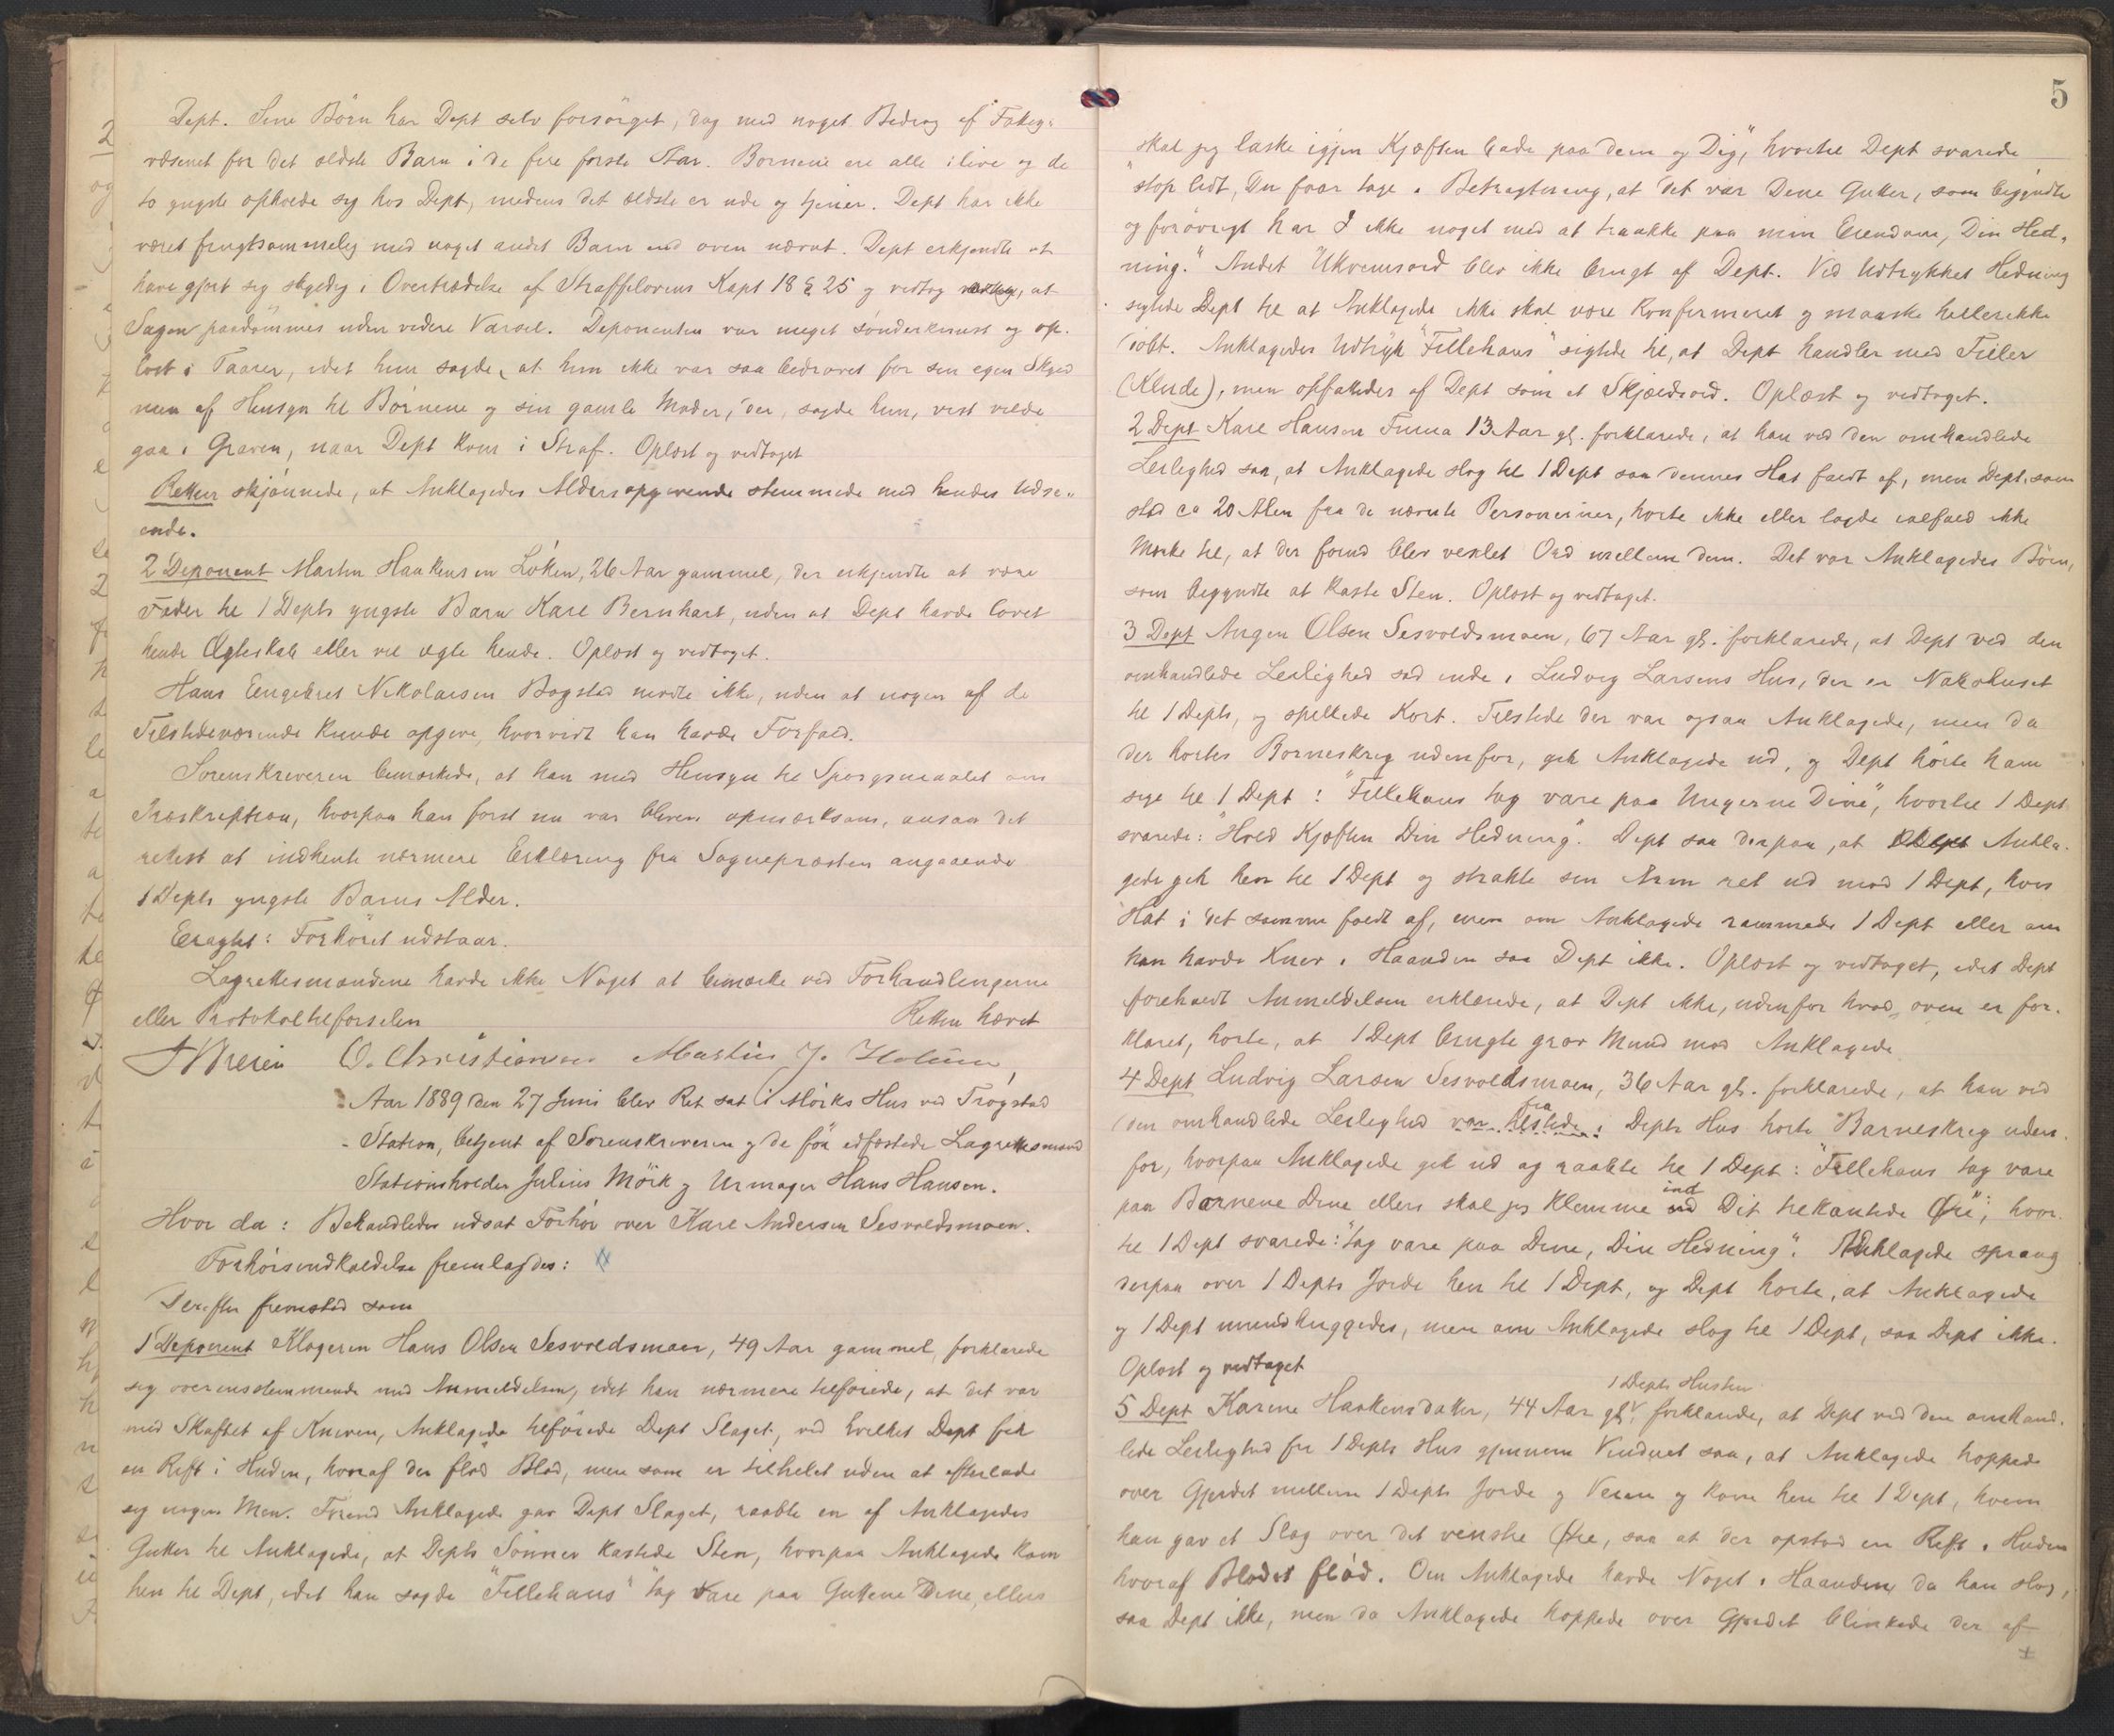 Dept. Sine Börn har Dept selv forsörget, dog med noget Bidrag af Fattig-
væsenet for det ældste Barn i de fire förste Aar. Bornene ere alle i live og de
to yngste opholde sig hos Dept, medens det ældste er ude og tjener. Dept har ikke
været frugtsommelig med noget andet Barn end oven nævnt. Dept erkjendte at
have gjort sig skyldig i Overtrædelse af Straffelovens Kapt 18 § 25 og vedtog, at
Sagen paadömmes uden videre Varsel. Deponenten var meget sönderknust og op-
löst i Taarer, idet hun sagde, at hun ikke var saa bedrövet for sin egen Skyld
men af Hensyn til Börnene og sin gamle Moder, der, sagde hun, vist vilde
gaa i Graven, naar Dept kom i Straf. Oplæst og vedtaget
Retten skjönnede, at Anklagedes Aldersopgivende stemmede med hendes Udse-
ende.
2 Deponent Martin Haakensen Löken, 26 Aar gammel, der erkjendte at være
Fader til 1 Depts yngste Barn Karl Bernhart, uden at Dept havde lovet
hende Ægteskab eller vil ægte hende. Oplæst og vedtaget.
Hans Engebret Nikolaisen Bogstad mödte ikke, uden at nogen af de
Tilstedeværende kunde opgive, hvorvidt han havde Forfald.
Sorenskriveren bemærkede, at han med Hensyn til Spörgsmaalet om
Præskription, hvorpaa han först nu var bleven opmærksom, ansaa det
rettest at indhente nærmere Erklæring fra Sognepræsten angaaende
1 Depts yngste Barns Alder.
Eragtet: Forhöret udstaar.
Lagrettesmændene havde ikke Noget at bemærke ved Forhandlingerne
eller Protokoltilförselen Retten hævet
O. Christiansen Martin J. Holum
Aar 1889 den 27 Juni blev Ret sat i Mörks Hus ved Trögstad
Station, betjent af Sorenskriveren og de för edfæstede Lagrettesmænd
Stationsholder Julius Mörk og Urmager Hans Hansen.
Hvor da: Behandledes udsat Forhör over Karl Andersen Sesvoldsmoen.
Forhörsindkaldelse fremlagdes:
Derefter fremstod som
1 Deponent Klageren Hans Olsen Sesvoldsmoen, 49 Aar gammel, forklarede
sig overensstemmende med Anmeldelsen, idet han nærmere tilföiede, at det var
med Skaftet af Kniven, Anklagede tilföiede Dept Slaget, ved hvilket Dept fik
en Rift i Huden, hvoraf der flöd Blod, men som er tilhelet uden at efterlade
sig nogen Men. Forend Anklagede gav Dept Slaget, raabte en af Anklagedes
Gutter til Anklagede, at Depts Sönner kastede Sten, hvorpaa Anklagede kom
hen til Dept, idet han sagde "Fillehans" tag vare paa Guttene Dine, ellers
5
skal jeg laske igjen Kjæften baade paa dem og Dig", hvortil Dept svarede
"stop lidt, Du faar tage i Betragtning, at det var Dine Gutter, som begyndte
og forövrigt har I ikke noget med at traakke paa min Eiendom, Din Hed-
ning." Andet Ukvemsord blev ikke brugt af Dept. Ved Udtrykket Hedning
sigtede Dept til at Anklagede ikke skal være Konfirmeret og maaske heller ikke
döbt. Anklagedes Udtryk "Fillehans" sigtede til, at Dept handler med Filler
(Klude), men opfattedes af Dept som et Skjældsord. Oplæst og vedtaget.
2 Dept Karl Hansen Furua 13 Aar gl. forklarede, at han ved den omhandlede
Leilighed saa, at Anklagede slog til 1 Dept saa dennes Hat faldt af, men Dept. som
stod ca 20 Alen fra de nævnte Personerne, hörte ikke eller lagde ialfald ikke
Mærke til, at der forud blev vexlet Ord mellem dem. Det var Anklagedes Börn,
som begyndte at kaste Sten. Oplæst og vedtaget.
3 Dept Jörgen Olsen Sesvoldsmoen, 67 Aar gl. forklarede, at Dept ved den
omhandlede Leilighed sad inde i Ludvig Larsens Hus, der er Nabohuset
til 1 Depts, og spillede Kort. Tilstede der var ogsaa Anklagede, men da
der hörtes Börneskrig udenfor, gik Anklagede ud, og Dept hörte ham
sige til 1 Dept: "Fillehans tag vare paa Ungerne Dine", hvortil 1 Dept.
svarede: "Hold Kjæften Din Hedning". Dept saa derpaa, at Ankla-
gede gik hen til 1 Dept og strakte sin Arm ret ud mod 1 Dept, hvis
Hat i det samme faldt af, men om Anklagede rammede 1 Dept eller om
han havde Kniv i Haanden saa Dept ikke. Oplæst og vedtaget, idet Dept
foreholdt Anmeldelsen erklærede, at Dept ikke, udenfor hvad oven er for-
klaret, hörte, at 1 Dept brugte grov Mund mod Anklagede
4 Dept Ludvig Larsen Sesvoldsmoen, 36 Aar gl. forklarede, at han ved
den omhandlede Leilighed var tilstede i fra Depts Hus hörte Barneskrig uden-
for, hvorpaa Anklagede gik ud og raabte til 1 Dept: "Fillehans tag vare
paa Barnene Dine ellers skal jeg klemme ind Dit trekantede Öie", hvor-
til 1 Dept svarede: "tag vare paa Dine, Din Hedning". Anklagede sprang
derpaa over 1 Depts Jorde hen til 1 Dept, og Dept hörte, at Anklagede
og 1 Dept mundhuggedes, men om Anklagede slog til 1 Dept, saa Dept ikke.
Oplæst og vedtaget
1 Depts Hustru
5 Dept Karine Haakensdatter, 44 Aar gl, forklarede, at Dept ved den omhand-
lede Leilighed fra 1 Depts Hus gjennem Vinduet saa, at Anklagede hoppede
over Gjerdet mellem 1 Depts Jorde og Veien og kom hen til 1 Dept, hvem
han gav et Slag over det venstre Öie, saa at der opstod en Rift i Huden
hvoraf Blodet flöd. Om Anklagede havde Noget i Haanden, da han slog,
saa Dept ikke, men da Anklagede hoppede over Gjerdet blinkede der af